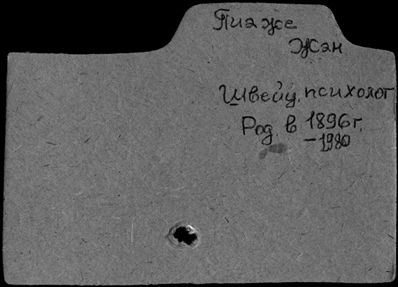 Пиаже
Жан
Швейц. психолог
Род. в 1896г.
-1980